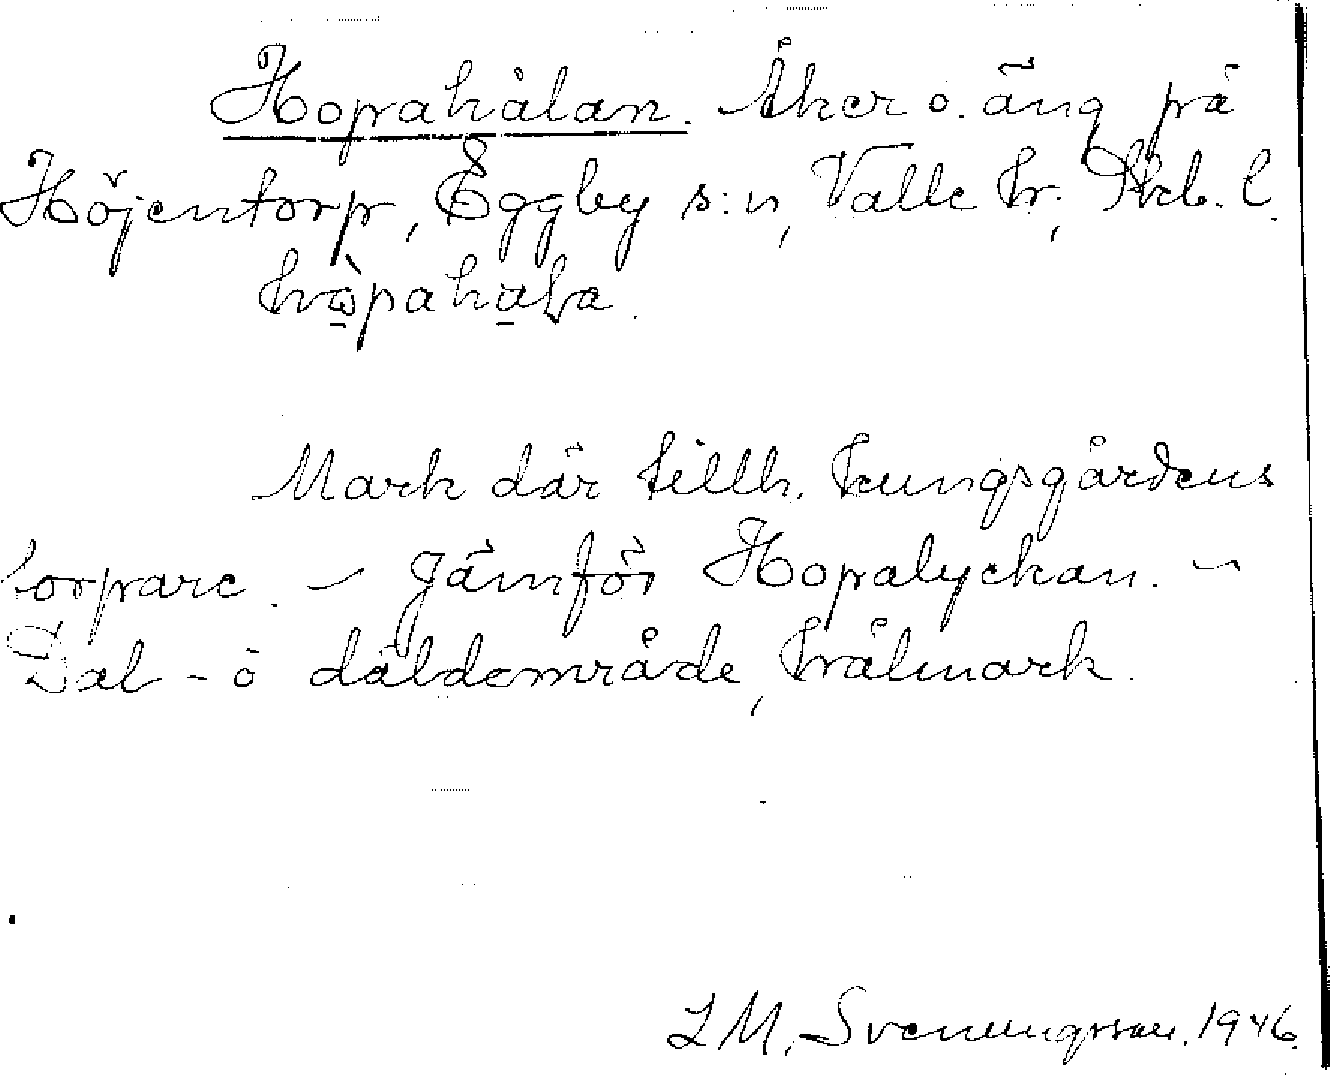 Hopahålan. Åker o. äng på
Höjentorp, Eggby s:n, Valle hr, Skb. l.
Mark där tillh. kungsgårdens
torpare. – Jämför Hopalyckan. –
Dal- o däldområde, hålmark.
L M. Svenungsson. 1946.